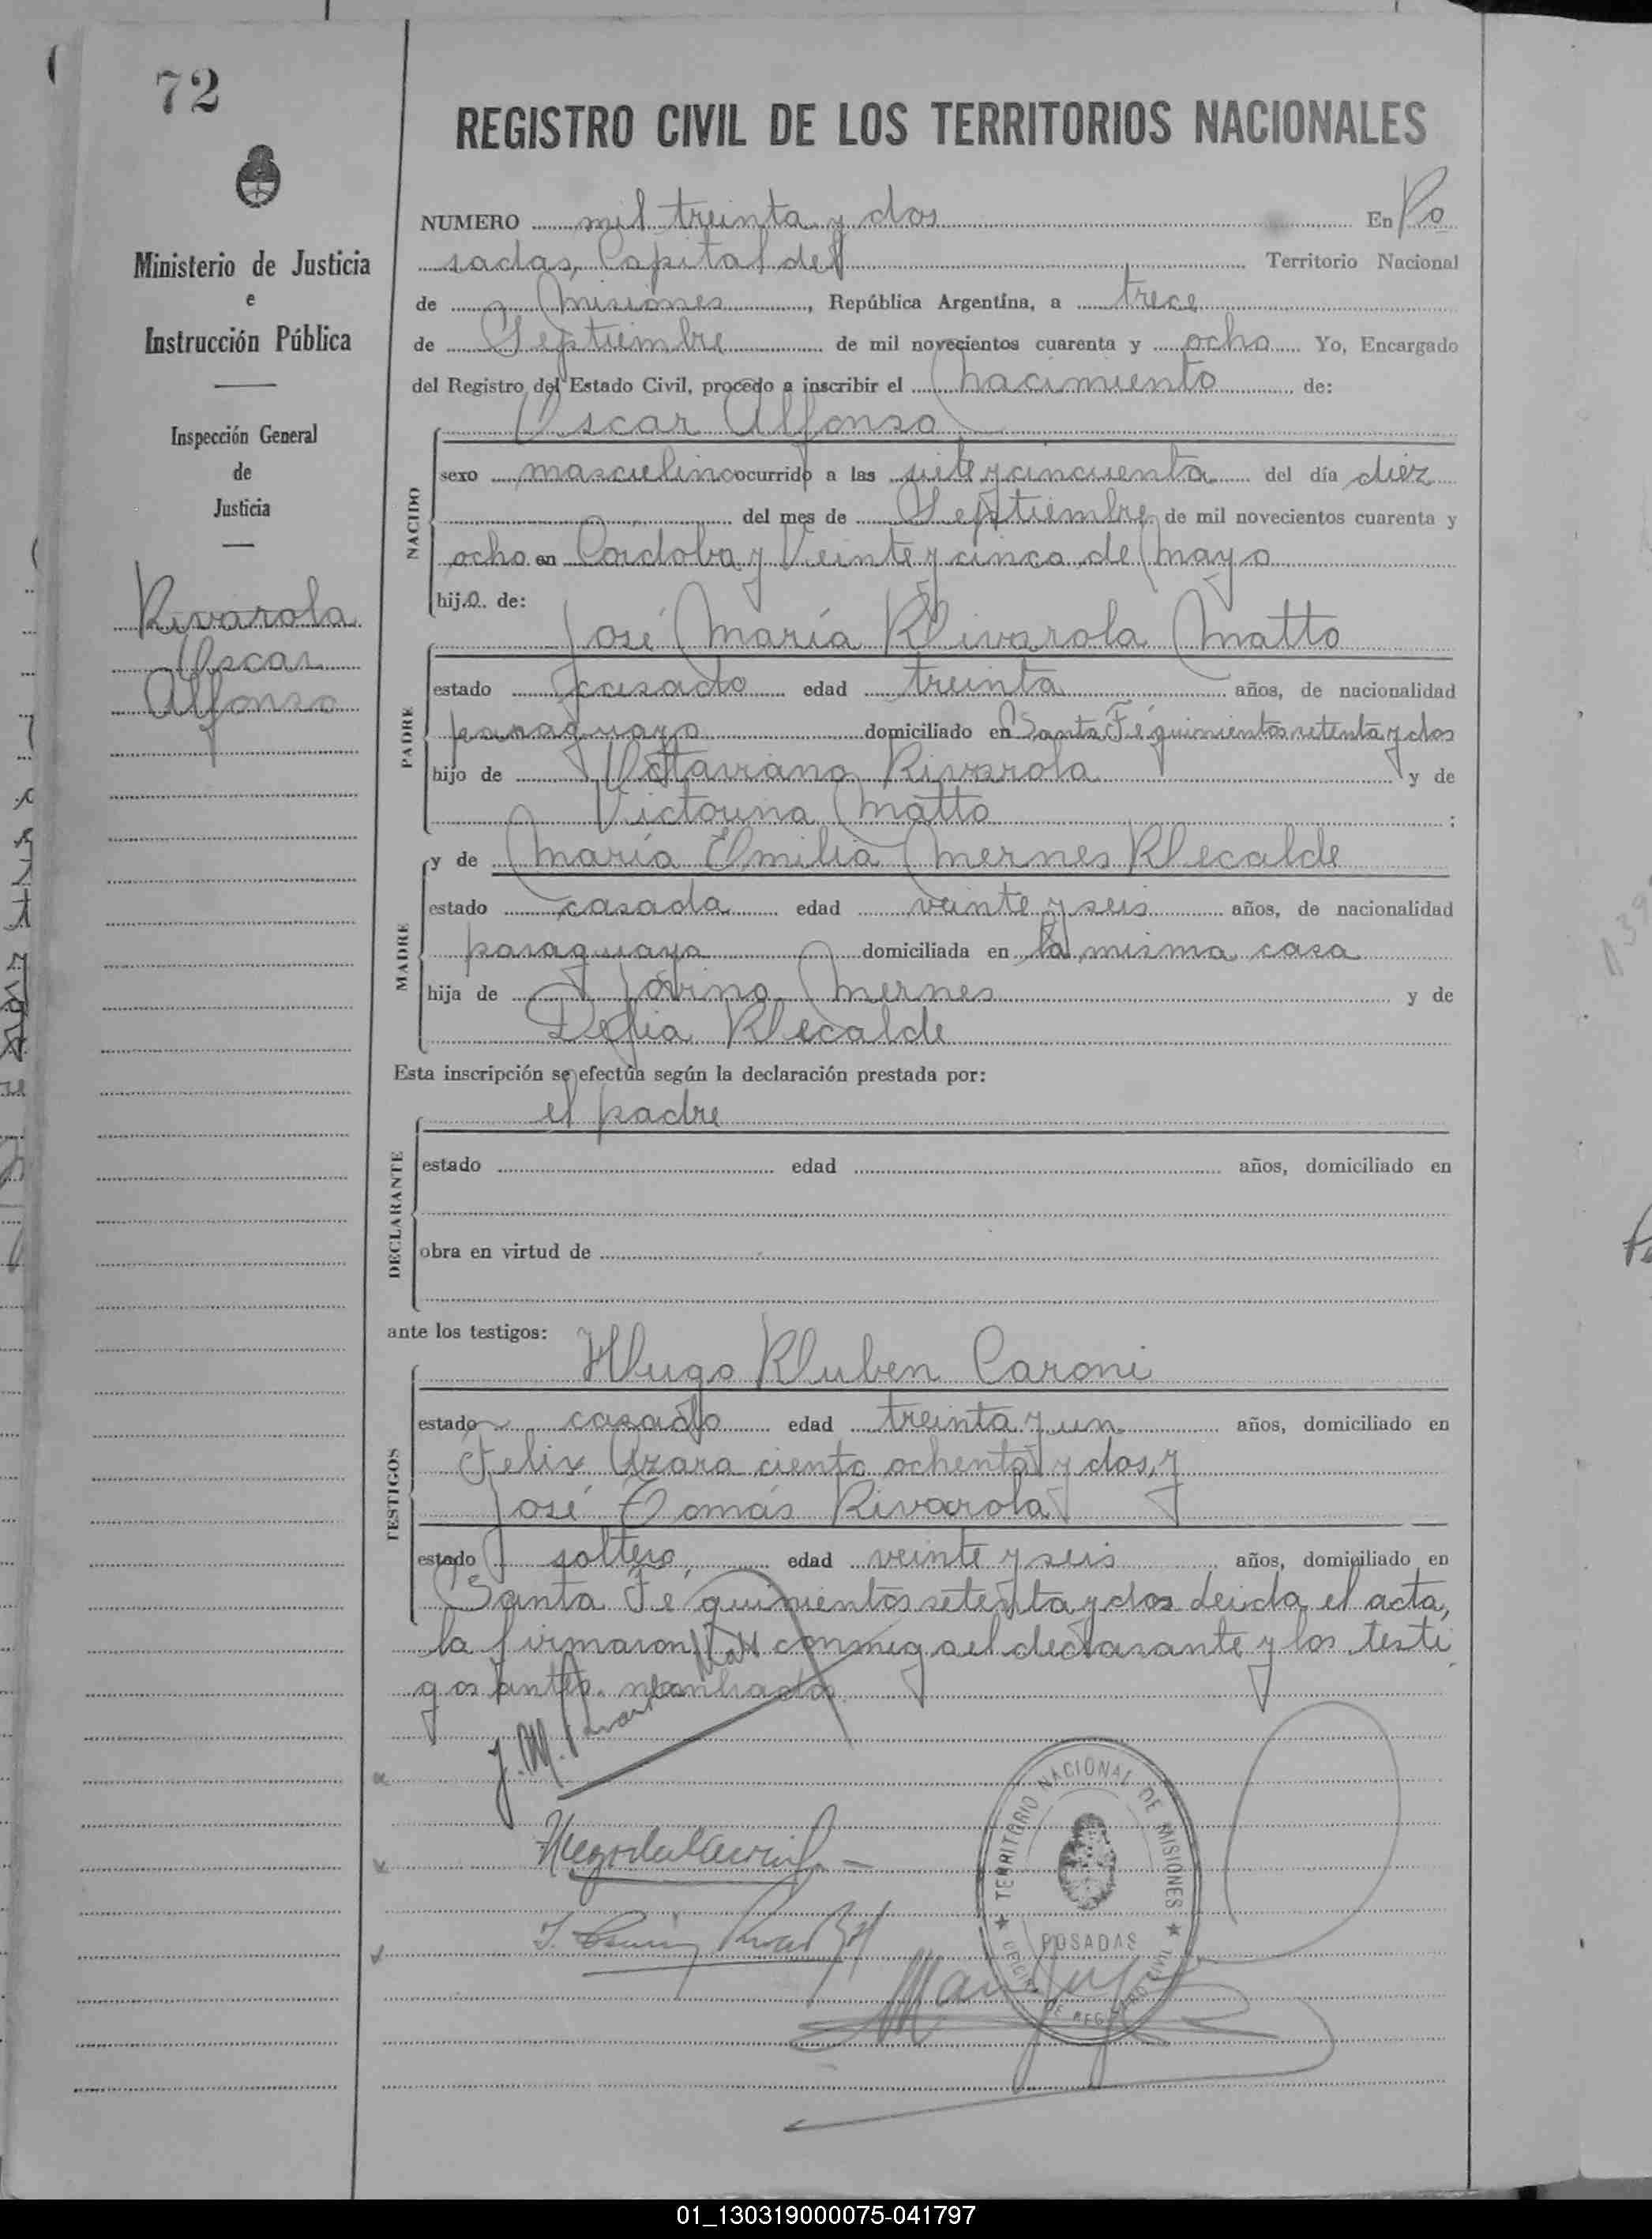 72
REGISTRO CIVIL DE LOS TERRITORIOS NACIONALES
Ministerio de Justicia
e
Instrucción Pública
Inspección General
de
Justicia
Rivarola
Oscar
Alfonso
NUMERO mil treinta y dos En Po
sadas, Capital del Territorio Nacional
de Misiones, República Argentina, a trece
de Septiembre de mil novecientos cuarenta y ocho Yo, Encargado
del Registro del Estado Civil, procedo a inscribir el nacimiento de:
Oscar Alfonso
NACIDO
sexo masculino ocurrido a las siete y cincuenta del día diez
del mes de Septiembre de mil novecientos cuarenta y
ocho en Cordoba y Veinte y cinco de Mayo
hijo de:
José María Rivarola Matto
PADRE
estado casado edad treinta años, de nacionalidad
paraguayo domiciliado en Santa Fé quinientos setenta y dos
hijo de Octaviano Rivarola y de
Victorina Matto ;
y de María Emilia Mernes Recalde
MADRE
estado casada edad veinte y seis años, de nacionalidad
paraguaya domiciliada en la misma casa
hija de Jovino Mernes y de
Delia Recalde
Esta inscripción se efectúa según la declaración prestada por:
el padre
DECLARANTE
estado edad años, domiciliado en
obra en virtud de
ante los testigos:
Hugo Ruben Caroni
TESTIGOS
estado casado edad treinta y un años, domiciliado en
Felix Azara ciento ochenta y dos, y
José Tomás Rivarola
estado soltero, edad veinte y seis años, domiciliado en
Santa Fe quinientos setenta y dos leida el acta,
la firmaron conmigo el declarante y los testi
gos antes nombrados.
J. M. Rivarola
TERRITORIO NACIONAL DE MISIONES
POSADAS
REGISTRO CIVIL
01_130319000075-041797